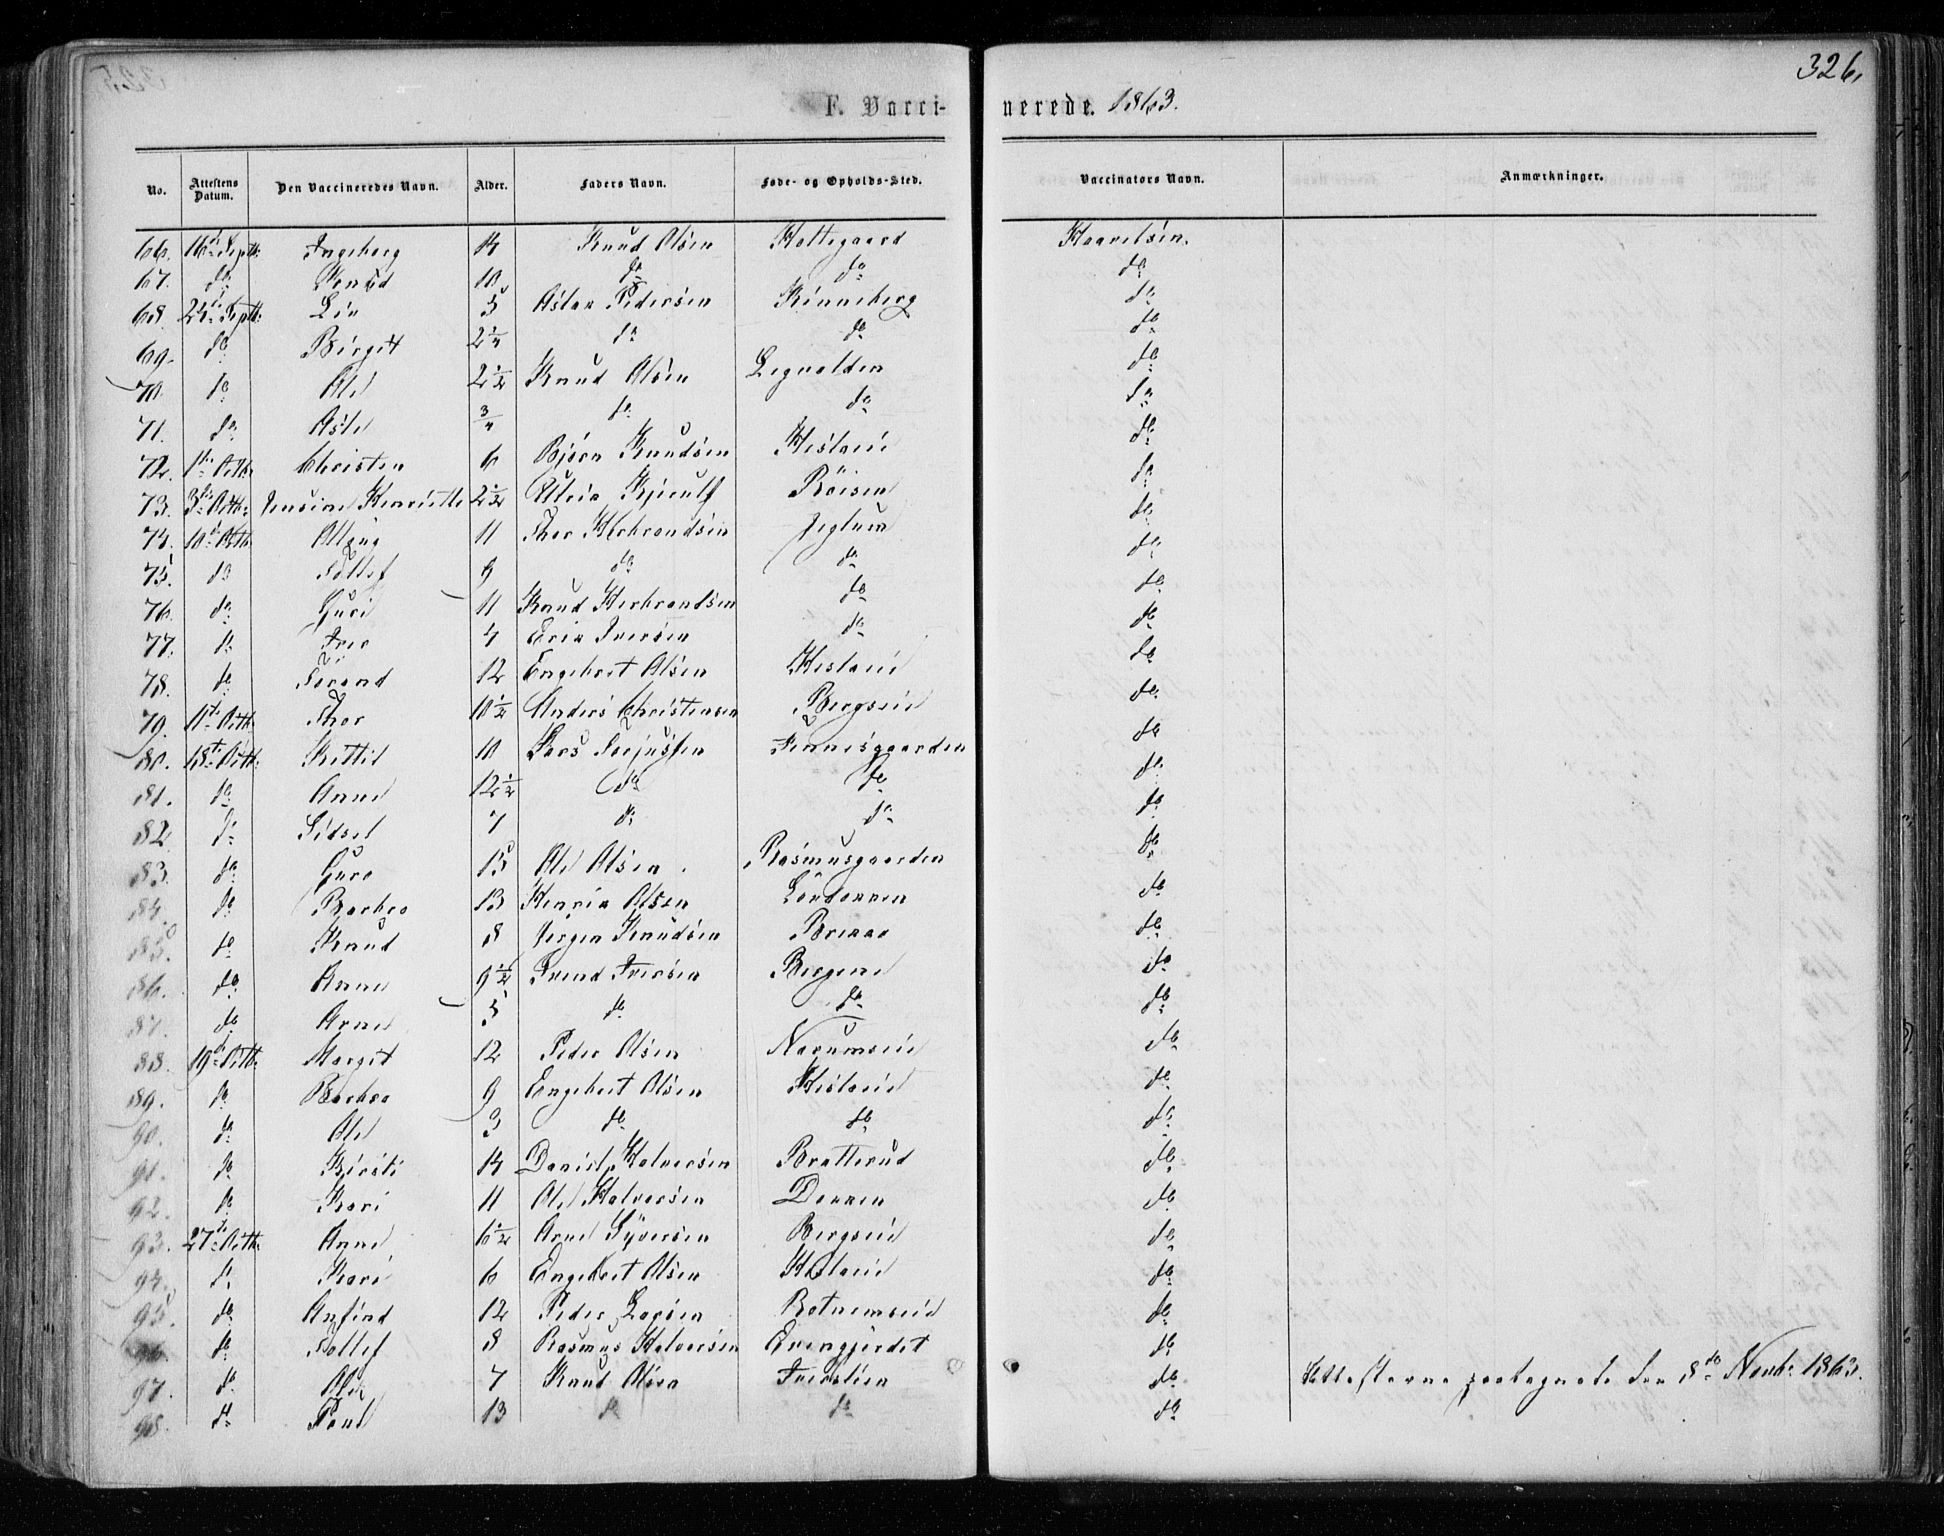 326.
F. Vaccinerede. 1863.
No. Attestens Datum. Den Vaccineredes Navn. Alder. Faders Navn. Føde- og Opholds-Sted. Vaccinators Navn. Anmærkninger.
66. 16de Septb: Ingeborg 14 Knud Olsen Koltegaard Haavelsen.
67. do Knud 10 do do do
68. 24de Septb: Liv 5 Aslak Pedersen Rønneberg do
69. do Birgit 2 1/4 do do do
70. do Ole 2 1/2 Knud Olsen do
71. do Asle 3/4 do do do
72. 1ste Octb: Christen 6 Bjørn Knudsen do
73. 3die Octb: Jensine Henriette 2 1/2 Kjerulf Røisen do
74. 10de Octb: 11 Thor Herbrandsen do
75. do Tollef 9 do do do
76. do Guri 11 Knud Herbrandsen do do
77. do Iver 4 Erik Iversen do do
78. do Trond 12 Engebret Olsen do
79. 11te Octb: Thor 10 1/2 Anders Christensen Bergseie do
80. 18de Octb: Kittil 10 Lars Finnesgaarden do
81. do Anne 12 1/2 do do do
82. do Sidsel 7 do do do
83. do Guro 15 Ole Olsen Rasmusgaarden do
84. do Barbro 13 Henrik Olsen do
85. do Knud 8 Jørgen Knudsen do
86. do Anne 9 1/2 Trond Iversen do
87. do Arne 5 do do do
88. 19de Octb: Margit 12 Peder Olsen do
89. do Barbro 9 Engebret Olsen do
90. do Ole 3 do do do
91. do Kirsti 14 Daniel Halvorsen Bratterud do
92. do Kari 11 Ole Halvorsen do
93. 27de Octb: Anne 6 1/2 Arne Syversen Bergseie do
94. do Kari 6 Engebret Olsen do
95. do Anfind 12 Peder Larsen do
96. do Tollef 8 Rasmus Halvorsen Evengjerdet do
97. do Ole 7 Knud Olsen do Attesterne paategnede den 8de Novb: 1863.
98. do 13 do do do